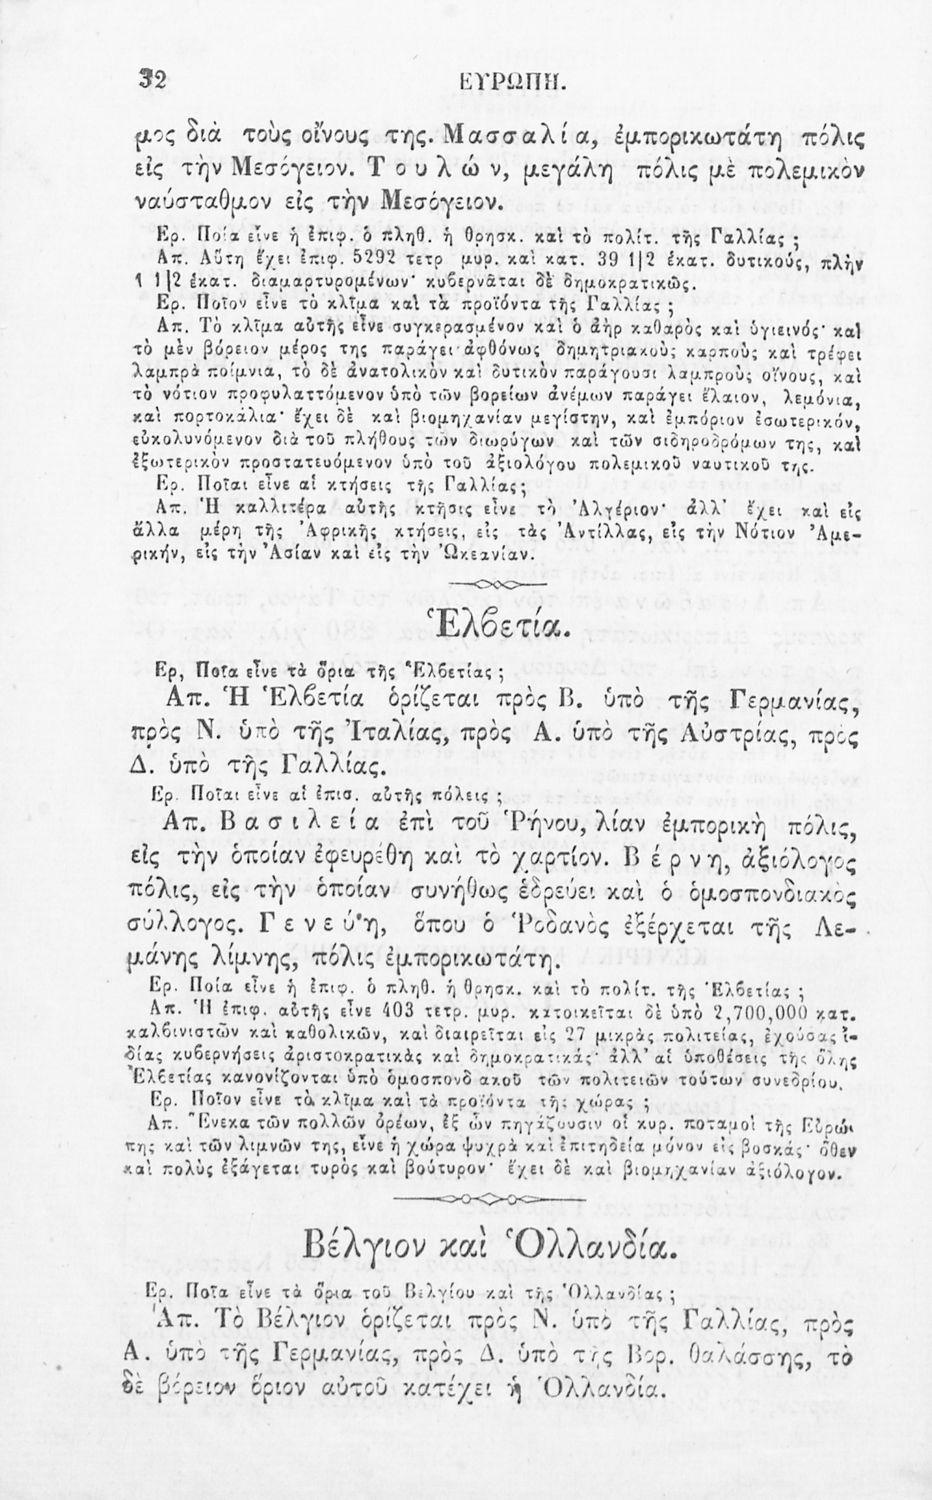 32 ΕΥΡΩΠΗ.
μος διὰ τοὺς οἴνους της. Μασσαλία, ἐμπορικωτάτη πόλις
εἰς τὴν Μεσόγειον. Τουλών, μεγάλη πόλις μὲ πολεμικὸν
ναύσταθμον εἰς τὴν Μεσόγειον.
Ερ. Ποία εἶνε ἡ ἐπιφ. ὁ πληθ. ἡ θρησκ. καὶ τὸ πολίτ. τῆς Γαλλίας ;
Απ. Αὕτη ἔχει ἐπιφ. 5292 τετρ μυρ. καὶ κατ. 39 1|2 ἑκατ. δυτικούς, πλὴν
1 1|2 ἑκατ. διαμαρτυρομένων· κυβερνᾶται δὲ δημοκρατικῶς.
Ερ. Ποῖον εἶνε τὸ κλῖμα καὶ τὰ προϊόντα τῆς Γαλλίας ;
Απ. Τὸ κλῖμα αὐτῆς εἶνε συγκερασμένον καὶ ὁ ἀὴρ καθαρὸς καὶ ὑγιεινός· καὶ
τὸ μὲν βόρειον μέρος της παράγει ἀφθόνως δημητριακοὺς καρποὺς καὶ τρέφει
λαμπρὰ ποίμνια, τὸ δὲ ἀνατολικὸν καὶ δυτικὸν παράγουσι λαμπροὺς οἴνους, καὶ
τὸ νότιον προφυλαττόμενον ὑπὸ τῶν βορείων ἀνέμων παράγει ἔλαιον, λεμόνια,
καὶ πορτοκάλια· ἔχει δὲ καὶ βιομηχανίαν μεγίστην, καὶ ἐμπόριον ἐσωτερικόν,
εὐκολυνόμενον διὰ τοῦ πλήθους τῶν διωρύγων καὶ τῶν σιδηροδρόμων της, καὶ
ἐξωτερικὸν προστατευόμενον ὑπὸ τοῦ ἀξιολόγου πολεμικοῦ ναυτικοῦ της.
Ερ. Ποῖαι εἶνε αἱ κτήσεις τῆς Γαλλίας;
Απ. Ἡ καλλιτέρα αὐτῆς κτῆσις εἶνε τὸ Ἀλγέριον· ἀλλ' ἔχει καὶ εἰς
ἄλλα μέρη τῆς Ἀφρικῆς κτήσεις, εἰς τὰς Ἀντίλλας, εἰς τὴν Νότιον Ἀμε-
ρικήν, εἰς τὴν Ἀσίαν καὶ εἰς τὴν Ὠκεανίαν.
Ἑλβετία.
Ερ, Ποῖα εἶνε τὰ ὅρια τῆς Ἑλβετίας ;
Απ. Ἡ Ἑλβετία ὁρίζεται πρὸς Β. ὑπὸ τῆς Γερμανίας,
πρὸς Ν. ὑπὸ τῆς Ἰταλίας, πρὸς Α. ὑπὸ τῆς Αὐστρίας, πρὸς
Δ. ὑπὸ τῆς Γαλλίας.
Ερ. Ποῖαι εἶνε αἱ ἐπισ. αὐτῆς πόλεις ;
Απ. Βασιλεία ἐπὶ τοῦ Ῥήνου, λίαν ἐμπορικὴ πόλις,
εἰς τὴν ὁποίαν ἐφευρέθη καὶ τὸ χαρτίον. Βέρνη, ἀξιόλογος
πόλις, εἰς τὴν ὁποίαν συνήθως ἑδρεύει καὶ ὁ ὁμοσπονδιακὸς
σύλλογος. Γενεύη, ὅπου ὁ Ῥοδανὸς ἐξέρχεται τῆς Λε-
μάνης λίμνης, πόλις ἐμπορικωτάτη.
Ερ. Ποία εἶνε ἡ ἐπιφ. ὁ πληθ. ἡ θρησκ. καὶ τὸ πολίτ. τῆς Ἑλβετίας ;
Απ. Ἡ ἐπιφ. αὐτῆς εἶνε 403 τετρ. μυρ. κατοικεῖται δὲ ὑπὸ 2,700,000 κατ.
καλβινιστῶν καὶ καθολικῶν, καὶ διαιρεῖται εἰς 27 μικρὰς πολιτείας, ἐχούσας ἰ-
δίας κυβερνήσεις ἀριστοκρατικὰς καὶ δημοκρατικάς· ἀλλ' αἱ ὑποθέσεις τῆς ὅλης
Ἑλβετίας κανονίζονται ὑπὸ ὁμοσπονδ ακοῦ τῶν πολιτειῶν τούτων συνεδρίου.
Ερ. Ποῖον εἶνε τὸ κλῖμα καὶ τὰ προϊόντα τῆς χώρας ;
Απ. Ἕνεκα τῶν πολλῶν ὀρέων, ἐξ ὧν πηγάζουσιν οἱ κυρ. ποταμοὶ τῆς Εὐρώ-
πης καὶ τῶν λιμνῶν της, εἶνε ἡ χώρα ψυχρὰ καὶ ἐπιτηδεία μόνον εἰς βοσκάς· ὅθεν
καὶ πολὺς ἐξάγεται τυρὸς καὶ βούτυρον· ἔχει δὲ καὶ βιομηχανίαν ἀξιόλογον.
Βέλγιον καὶ Ὁλλανδία.
Ερ. Ποῖα εἶνε τὰ ὅρια τοῦ Βελγίου καὶ τῆς Ὁλλανδίας ;
Ἀπ. Τὸ Βέλγιον ὁρίζεται πρὸς Ν. ὑπὸ τῆς Γαλλίας, πρὸς
Α. ὑπὸ τῆς Γερμανίας, πρὸς Δ. ὑπὸ τῆς Βορ. θαλάσσης, τὸ
δὲ βόρειον ὅριον αὐτοῦ κατέχει ἡ Ὁλλανδία.